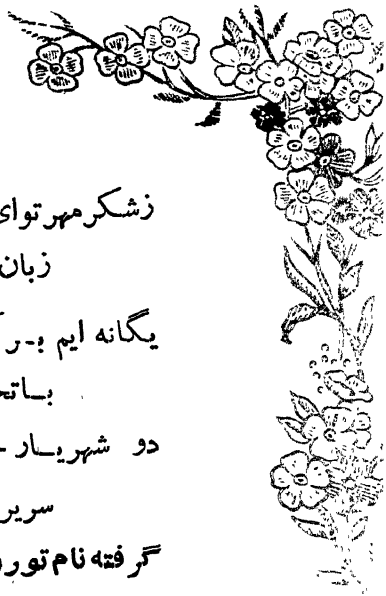 زشکر مهر توای
زبان
یگانه ایم بـر
بـاتح
دو شهریـار
سریر
گرفته نام تور